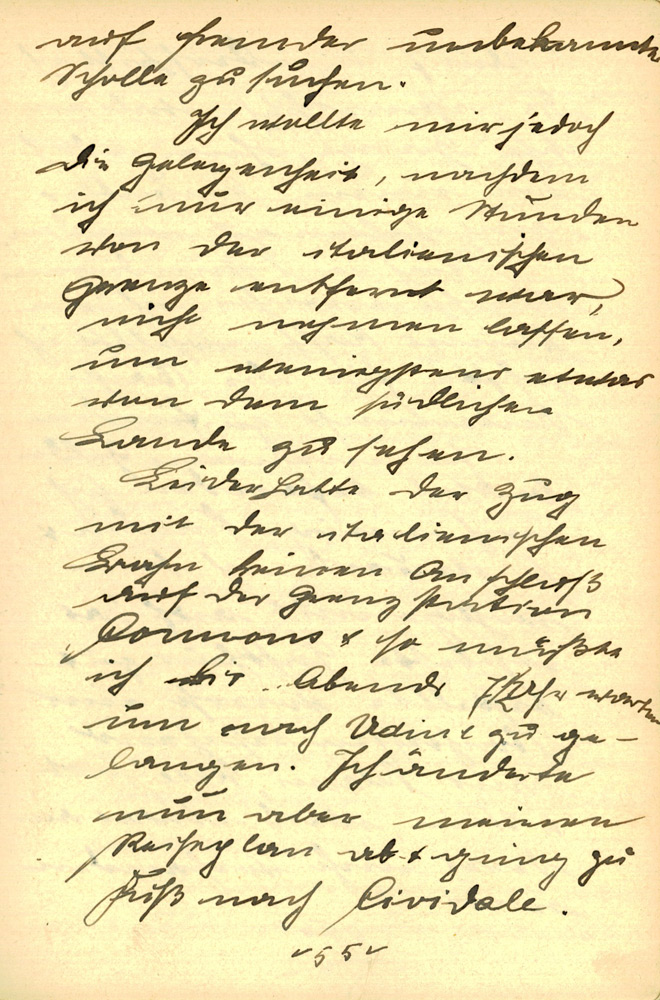 auf fremder unbekannte
Scholle zu suchen.
Ich wollte mir jedoch
die Gelegenheit, nachdem
ich nur einige Stunden
von der italienischen
Grenze entfernt war,
nicht nehmen lassen,
um wenigstens etwas
von dem südlichen
Lande zu sehen.
Leider hatte der Zug
mit der italienischen
Bahn keinen Anschluß
auf der Grenzstation
Cormons & so mußte
ich bis Abends 7½ Uhr warten
um nach Udine zu ge-
langen. Ich änderte
nun aber meinen
Reiseplan ab & ging zu
Fuß nach Cividale.
~ 55 ~